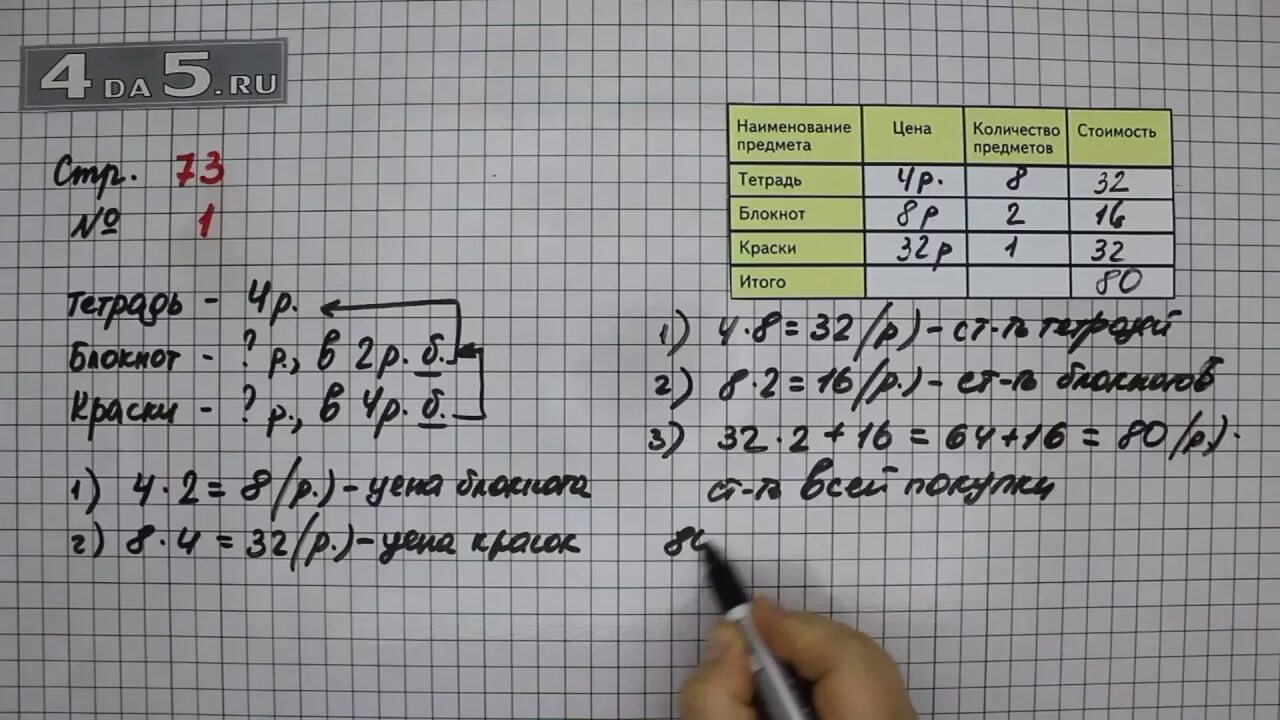 4DA5.RU
Стр. 73
№ 1
Тетрадь - 4р.
Блокнот - ? р., в 2р. б.
Краски - ? р., в 4р. б.
1) 4·2 = 8 (р.) - цена блокнота
2) 8·4 = 32 (р.) - цена красок
Наименование предмета Цена Количество предметов Стоимость
Тетрадь 4р. 8 32
Блокнот 8р 2 16
Краски 32р 1 32
Итого 80
1) 4·8 = 32 (р) - ст-ть тетрадей
2) 8·2 = 16 (р.) - ст-ть блокнотов
3) 32·2 + 16 = 64 + 16 = 80 (р).
ст-ть всей покупки